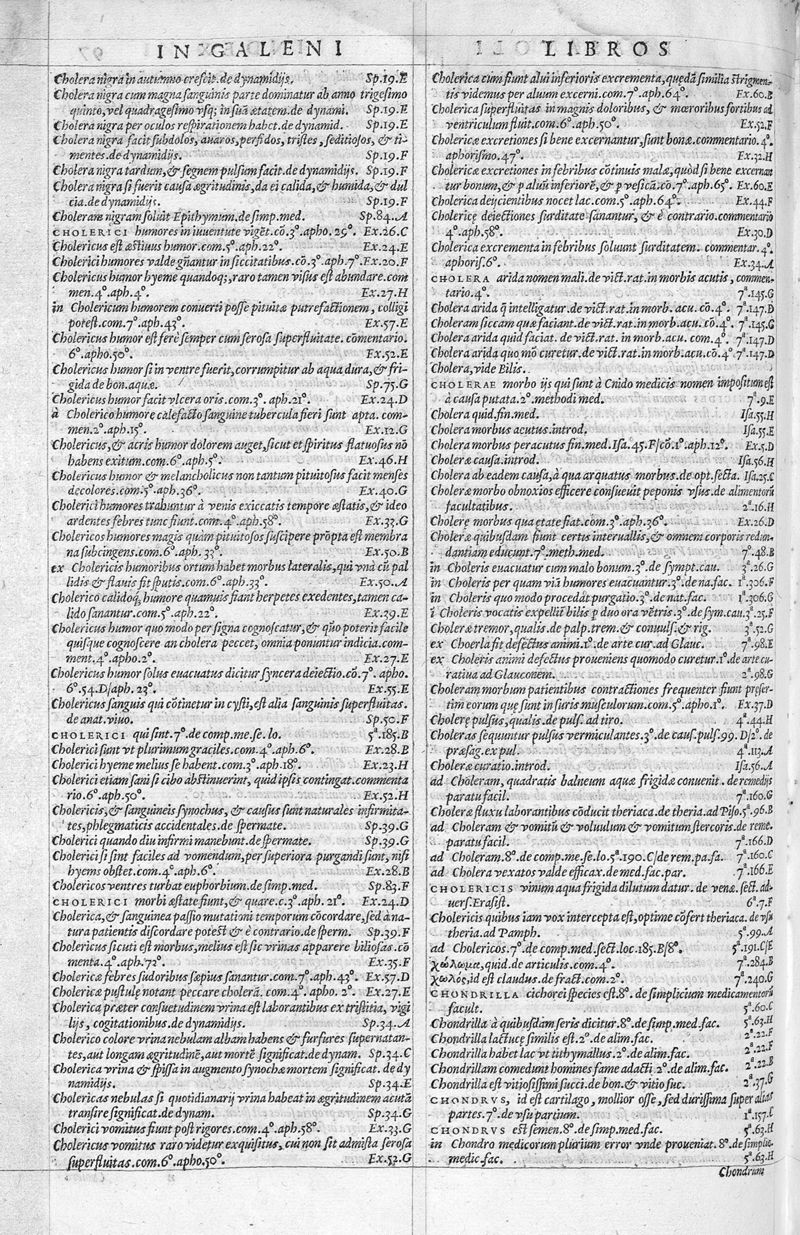 IN GALENI
Cholera nigra in autumno crescit.de dynamidijs. Sp.19.E
Cholera nigra cum magna sanguinis parte dominatur ab anno trigesimo
quinto, vel quadragesimo vsq; in suã ætatem.de dynami. Sp.19.E
Cholera nigra per oculos respirationem habet.de dynamid. Sp.19.E
Cholera nigra facit subdolos, auaros, perfidos, tristes, seditiosos, & ti-
mentes.de dynamidijs. Sp.19.F
Cholera nigra tardum, & segnem pulsum facit.de dynamidijs. Sp.19.F
Cholera nigra si fuerit causa ægritudinis, da ei calida, & humida, & dul
cia.de dynamidijs. Sp.19.F
Choleram nigram soluit Epithymum.de simp.med. Sp.84.A
CHOLERICI humores in iuuentute vigẽt.cõ.3º.apho.29º. Ex.26.C
Cholericus est æstiuus humor.com.5º.aph.22º. Ex.24.E
Cholerici humores valde gñantur in siccitatibus.cõ.3º.aph.7º. Ex.20.F
Cholericus humor hyeme quandoq;, raro tamen visus est abundare.com
men.4º.aph.4º. Ex.27.H
in Cholericum humorem conuerti posse pituitæ putrefactionem, colligi
potest.com.7º.aph.43º. Ex.57.E
Cholericus humor est ferè semper cum serosa superfluitate.cõmentario.
6º.apho.50º. Ex.52.E
Cholericus humor si in ventre fuerit, corrumpitur ab aqua dura, & fri-
gida de bon.aquæ. Sp.75.G
Cholericus humor facit vlcera oris.com.3º.aph.21º. Ex.24.D
à Cholerico humore calefacto sanguine tubercula fieri sunt apta. com-
men.2º.aph.15º. Ex.12.G
Cholericus, & acris humor dolorem auget, sicut et spiritus flatuosus nõ
habens exitum.com.6º.aph.5º. Ex.46.H
Cholericus humor & melancholicus non tantum pituitosus facit menses
decolores.com.5º.aph.36º. Ex.40.G
Cholerici humores trahuntur à venis exiccatis tempore æstatis, & ideo
ardentes febres tunc fiunt.com.4º.aph.58º. Ex.33.G
Cholericos humores magis quàm pituitosos suscipere prõpta est membra
na subcingens.com.6º.aph. 33º. Ex.50.B
ex Cholericis humoribus ortum habet morbus lateralis, qui vnà cũ pal
lidis & flauis fit sputis.com.6º.aph.33º. Ex.50.A
Cholerico calidoq; humore quamuis fiant herpetes exedentes, tamen ca-
lido sanantur.com.5º.aph.22º. Ex.39.E
Cholericus humor quo modo per signa cognoscatur, & quo poterit facile
quisque cognoscere an cholera peccet, omnia ponuntur indicia.com-
ment.4º.apho.2º. Ex.27.E
Cholericus humor solus euacuatus dicitur syncera deiectio.cõ.7º. apho.
6º.54.D/aph.23º. Ex.55.E
Cholericus sanguis qui cõtinetur in cysti, est alia sanguinis superfluitas.
de anat.viuo. Sp.50.F
CHOLERICI qui sint.7º.de comp.me.se.lo. 5ª.185.B
Cholerici sunt vt plurimum graciles.com.4º.aph.6º. Ex.28.B
Cholerici hyeme melius se habent.com.3º.aph.18º. Ex.23.H
Cholerici etiam sani si cibo abstinuerint, quid ipsis contingat.commenta
rio.6º.aph.50º. Ex.52.H
Cholericis, & sanguineis synochus, & causus sunt naturales infirmita-
tes, phlegmaticis accidentales.de spermate. Sp.39.G
Cholerici quando diu infirmi manebunt.de spermate. Sp.39.G
Cholerici si sint faciles ad vomendum, per superiora purgandi sunt, nisi
hyems obstet.com.4º.aph.6º. Ex.28.B
Cholericos ventres turbat euphorbium.de simp.med. Sp.83.F
CHOLERICI morbi æstate fiunt, & quare.c.3º.aph. 21º. Ex.24.D
Cholerica, & sanguinea passio mutationi temporum cõcordare, sed à na-
tura patientis discordare potest & è contrario.de sperm. Sp.39.F
Cholericus sicuti est morbus, melius est sic vrinas apparere biliosas.cõ
menta.4º.aph.72º. Ex.35.F
Cholericæ febres sudoribus sæpius sanantur.com.7º.aph.43º. Ex.57.D
Cholericæ pustulę notant peccare cholerã. com.4º. apho. 2º. Ex.27.E
Cholerica præter consuetudinem vrina est laborantibus ex tristitia, vigi
lijs, cogitationibus.de dynamidijs. Sp.34.A
Cholerico colore vrina nebulam albam habens & furfures supernatan-
tes, aut longam ægritudinẽ, aut mortẽ significat.de dynam. Sp.34.C
Cholerica vrina & spissa in augmento synochæ mortem significat. de dy
namidijs. Sp.34.E
Cholericas nebulas si quotidianarij vrina habeat in ægritudinem acutã
transire significat.de dynam. Sp.34.G
Cholerici vomitus fiunt post rigores.com.4º.aph.58º. Ex.33.G
Cholericus vomitus raro videtur exquisitus, cui non sit admista serosa
superfluitas.com.6º.apho.50º. Ex.52.G
LIBROS
Cholerica cum fiunt alui inferioris excrementa, quędã similia strigmen-
tis videmus per aluum excerni.com.7º.aph.64º. Ex.60.B
Cholerica superfluitas in magnis doloribus, & mæroribus fortibus ad
ventriculum fluit.com.6º.aph.50º. Ex.52.F
Cholericæ excretiones si bene excernantur, sunt bonæ.commentario.4º.
aphorismo.47º. Ex.32.H
Cholericæ excretiones in febribus cõtinuis malæ, quòd si bene excernan
tur bonum, & p aluũ inferiorẽ, & p vesicã.cõ.7º.aph.65º. Ex.60.E
Cholerica deijcientibus nocet lac.com.5º.aph.64º. Ex.44.F
Cholericę deiectiones surditate sanantur, & è contrario.commentario
4º.aph.58º. Ex.30.D
Cholerica excrementa in febribus soluunt surditatem. commentar.4º.
aphoris.6º. Ex.34.A
CHOLERA arida nomen mali.de vict.rat.in morbis acutis, commen-
tario.4º. 7ª.145.G
Cholera arida q̃ intelligatur.de vict.rat.in morb. acu. cõ.4º. 7ª.147.D
Choleram siccam quæ faciant.de vict.rat.in morb. acu. cõ.4º. 7ª.145.G
Cholera arida quid faciat. de vict.rat. in morb.acu. com.4º. 7ª.147.D
Cholera arida quo mõ curetur.de vict.rat.in morb.acu.cõ.4º.7ª.147.D
Cholera, vide Bilis.
CHOLERAE morbo ijs qui sunt à Cnido medicis nomen impositum est
à causa putata.2º.methodi med. 7ª.9.E
Cholera quid.fin.med. Isa.55.H
Cholera morbus acutus.introd. Isa.55.E
Cholera morbus peracutus fin.med.Isa.45.F/cõ.1º.aph.12º. Ex.5.D
Choleræ causa.introd. Isa.56.H
Cholera ab eadem causa, à qua arquatus morbus.de opt.secta. Isa.25.C
Choleræ morbo obnoxios efficere consueuit peponis vsus.de alimentorũ
facultatibus. 2ª.16.H
Cholerę morbus qua ętate fiat.com.3º.aph.36º. Ex.26.D
Choleræ quibusdam fiunt certis interuallis, & omnem corporis redun-
dantiam educunt.7º.meth.med. 7ª.48.B
in Choleris euacuatur cum malo bonum.3º.de sympt.cau. 3ª.26.G
in Choleris per quam viã humores euacuantur.3º.de na.fac. 1ª.306.F
in Choleris quo modo procedàt purgatio.3º.de nat.fac. 1ª.306.G
ĩ Choleris vocatis expellit bilis p duo ora vẽtris.3º.de sym.cau.3ª.25.F
Choleræ tremor, qualis.de palp.trem. & conuuls. & rig. 3ª.52.G
ex Choerla fit defectus animi.1º.de arte cur.ad Glauc. 7ª.98.E
ex Choleris animi defectus proueniens quomodo curetur.1º.de arte cu-
ratiua ad Glauconem. 2ª.98.G
Choleram morbum patientibus contractiones frequenter fiunt præser-
tim eorum quę sunt in suris musculorum.com.5º.apho.1º. Ex.37.D
Cholerę pulsus, qualis.de puls. ad tiro. 4ª.44.H
Choleras sequuntur pulsus vermiculantes.3º.de caus.puls.99. D/2º. de
præsag.ex pul. 4ª.113.A
Choleræ curatio.introd. Isa.56.A
ad Choleram, quadratis balneum aquæ frigidæ conuenit. de remedijs
paratu facil. 7ª.160.G
Choleræ fluxu laborantibus cõducit theriaca.de theria.ad Piso.5ª.96.B
ad Choleram & vomitũ & voluulum & vomitum stercoris.de reme.
paratu facil. 7ª.166.D
ad Choleram.8º.de comp.me.se.lo.5ª.190.C/de rem.pa.fa. 7ª.160.C
ad Cholera vexatos valde efficax.de med.fac.par. 7ª.166.E
CHOLERICIS vinum aqua frigida dilutum datur. de venæ.sect.ad-
uers.Erasist. 6ª.7.F
Cholericis quibus iam vox intercepta est, optime cõfert theriaca.de vsu
theria.ad Pamph. 5ª.99.A
ad Cholericos.7º.de comp.med.sect.loc.185.B/8º. 5ª.191.C/E
χώλωμα, quid.de articulis.com.4º. 7ª.284.B
χωλός, id est claudus.de fract.com.2º. 7ª.240.G
CHONDRILLA cichorei species est.8º. de simplicium medicamentorũ
facult. 5ª.60.C
Chondrilla à quibusdam seris dicitur.8º.de simp.med.fac. 5ª.63.H
Chondrilla lactucę similis est.2º.de alim.fac. 2ª.22.F
Chondrilla habet lac vt tithymallus.2º.de alim.fac. 2ª.22.F
Chondrillam comedunt homines fame adacti.2º.de alim.fac. 2ª.22.B
Chondrilla est vitiosissimi succi.de bon. & vitio suc. 2ª.37.G
CHONDRVS, id est cartilago, mollior osse, sed durissima super alias
partes.7º.de vsu partium. 1ª.157.C
CHONDRVS est semen.8º.de simp.med.fac. 5ª.63.H
in Chondro medicorum plurium error vnde proueniat. 8º.de simplic.
medic.fac. 5ª.63.H
Chondrum